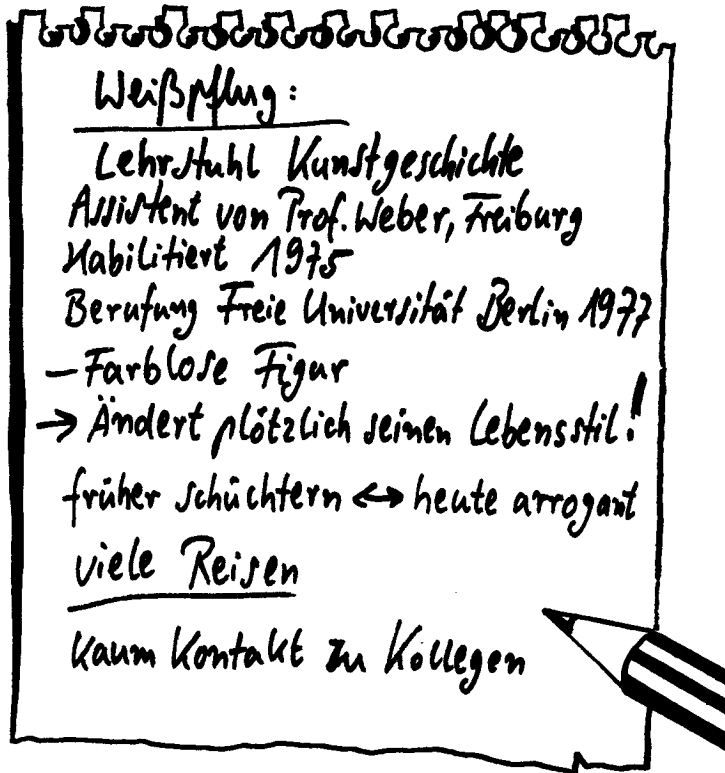 Weißpflug:
Lehrstuhl Kunstgeschichte
Assistent von Prof. Weber, Freiburg
Habilitiert 1975
Berufung Freie Universität Berlin 1977
– Farblose Figur
→ Ändert plötzlich seinen Lebensstil!
früher schüchtern ↔ heute arrogant
viele Reisen
Kaum Kontakt zu Kollegen